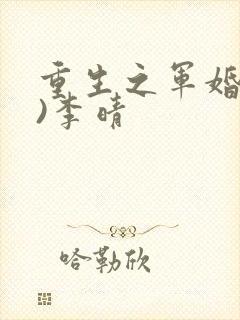 重生之军婚
)李晴
哈勒欣